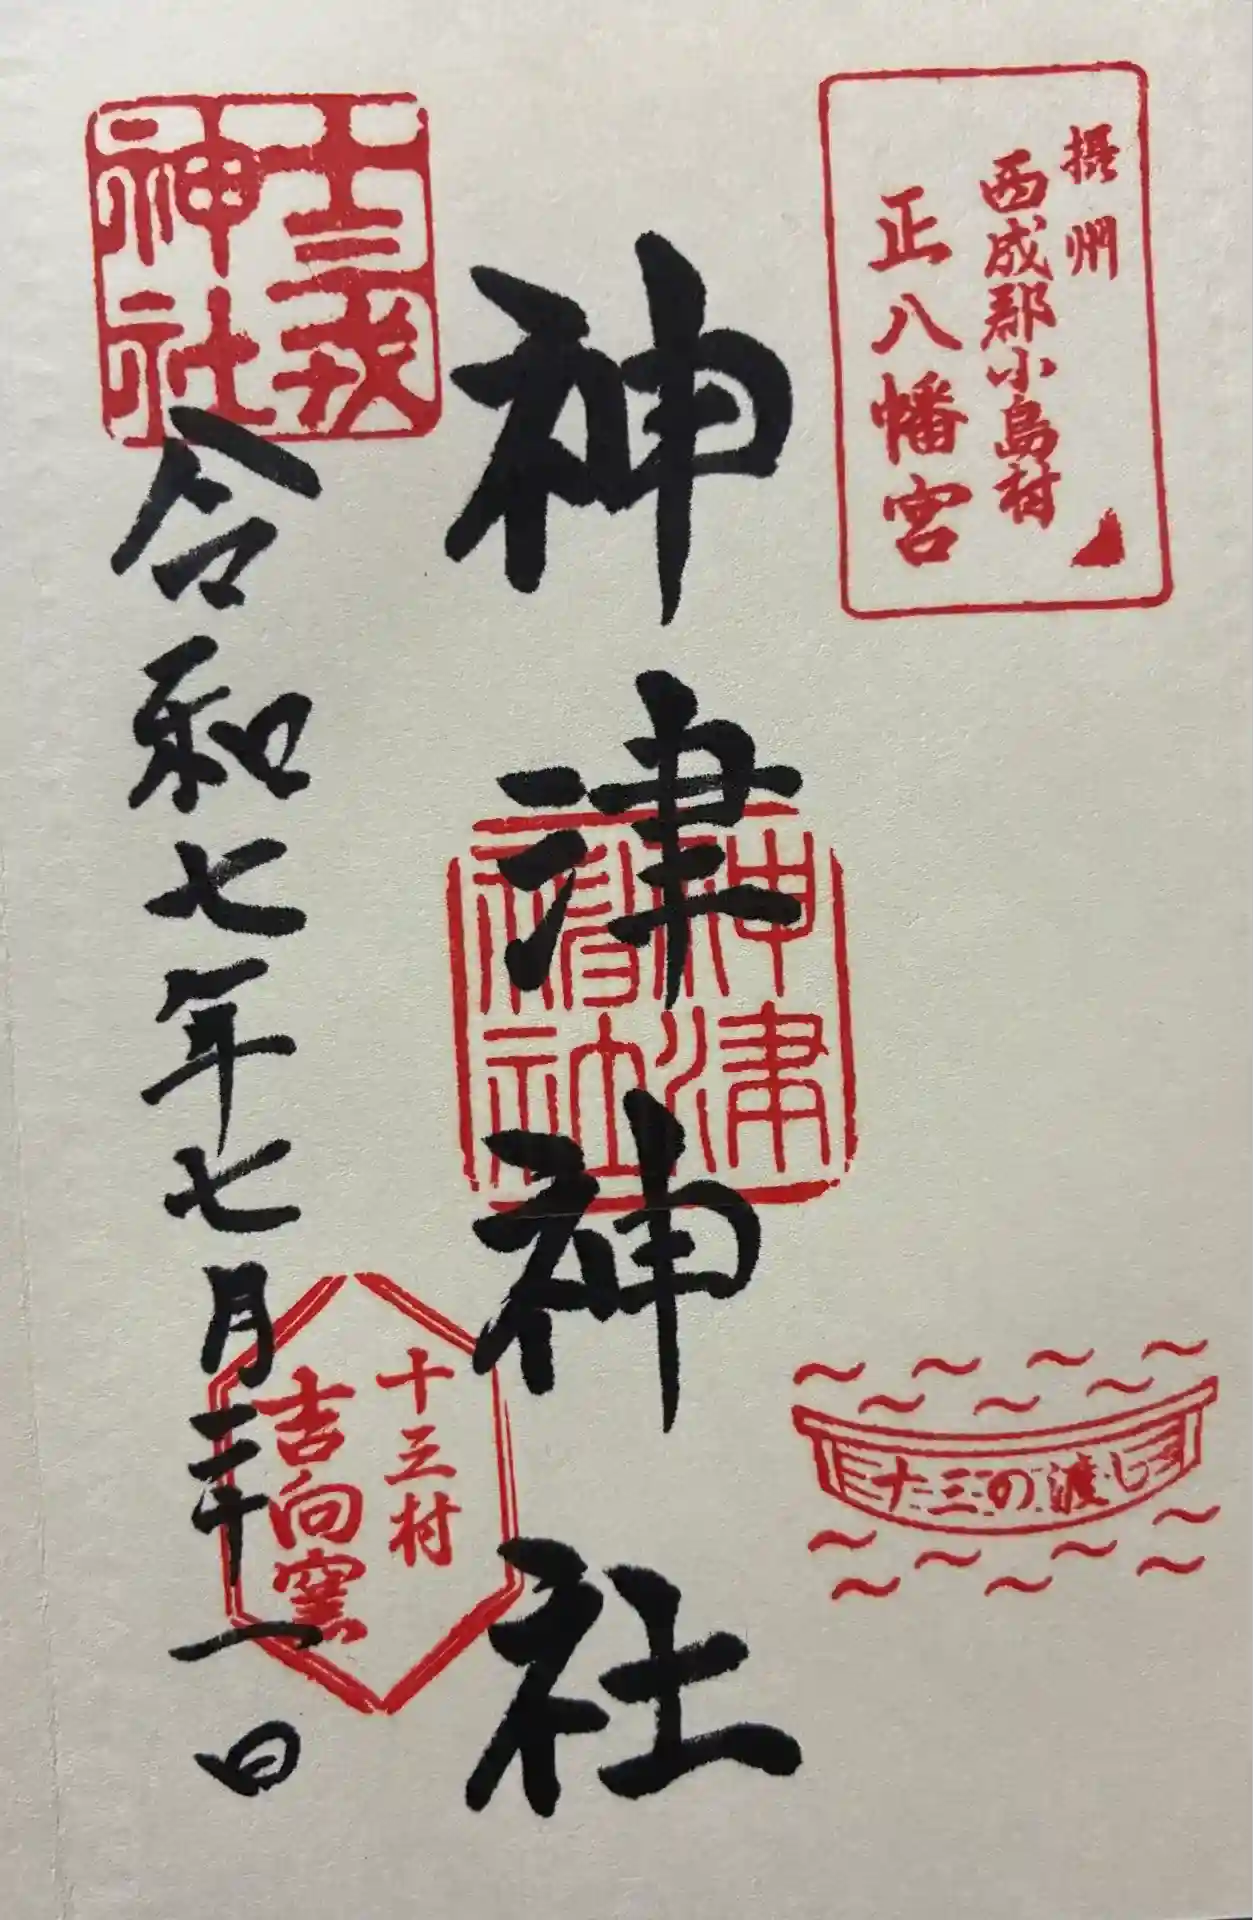 摂州
西成郡小島村
正八幡宮
十三の渡し
神津神社
神津
神社
十三戎
神社
令和七年七月二十一日
十三村
吉向窯